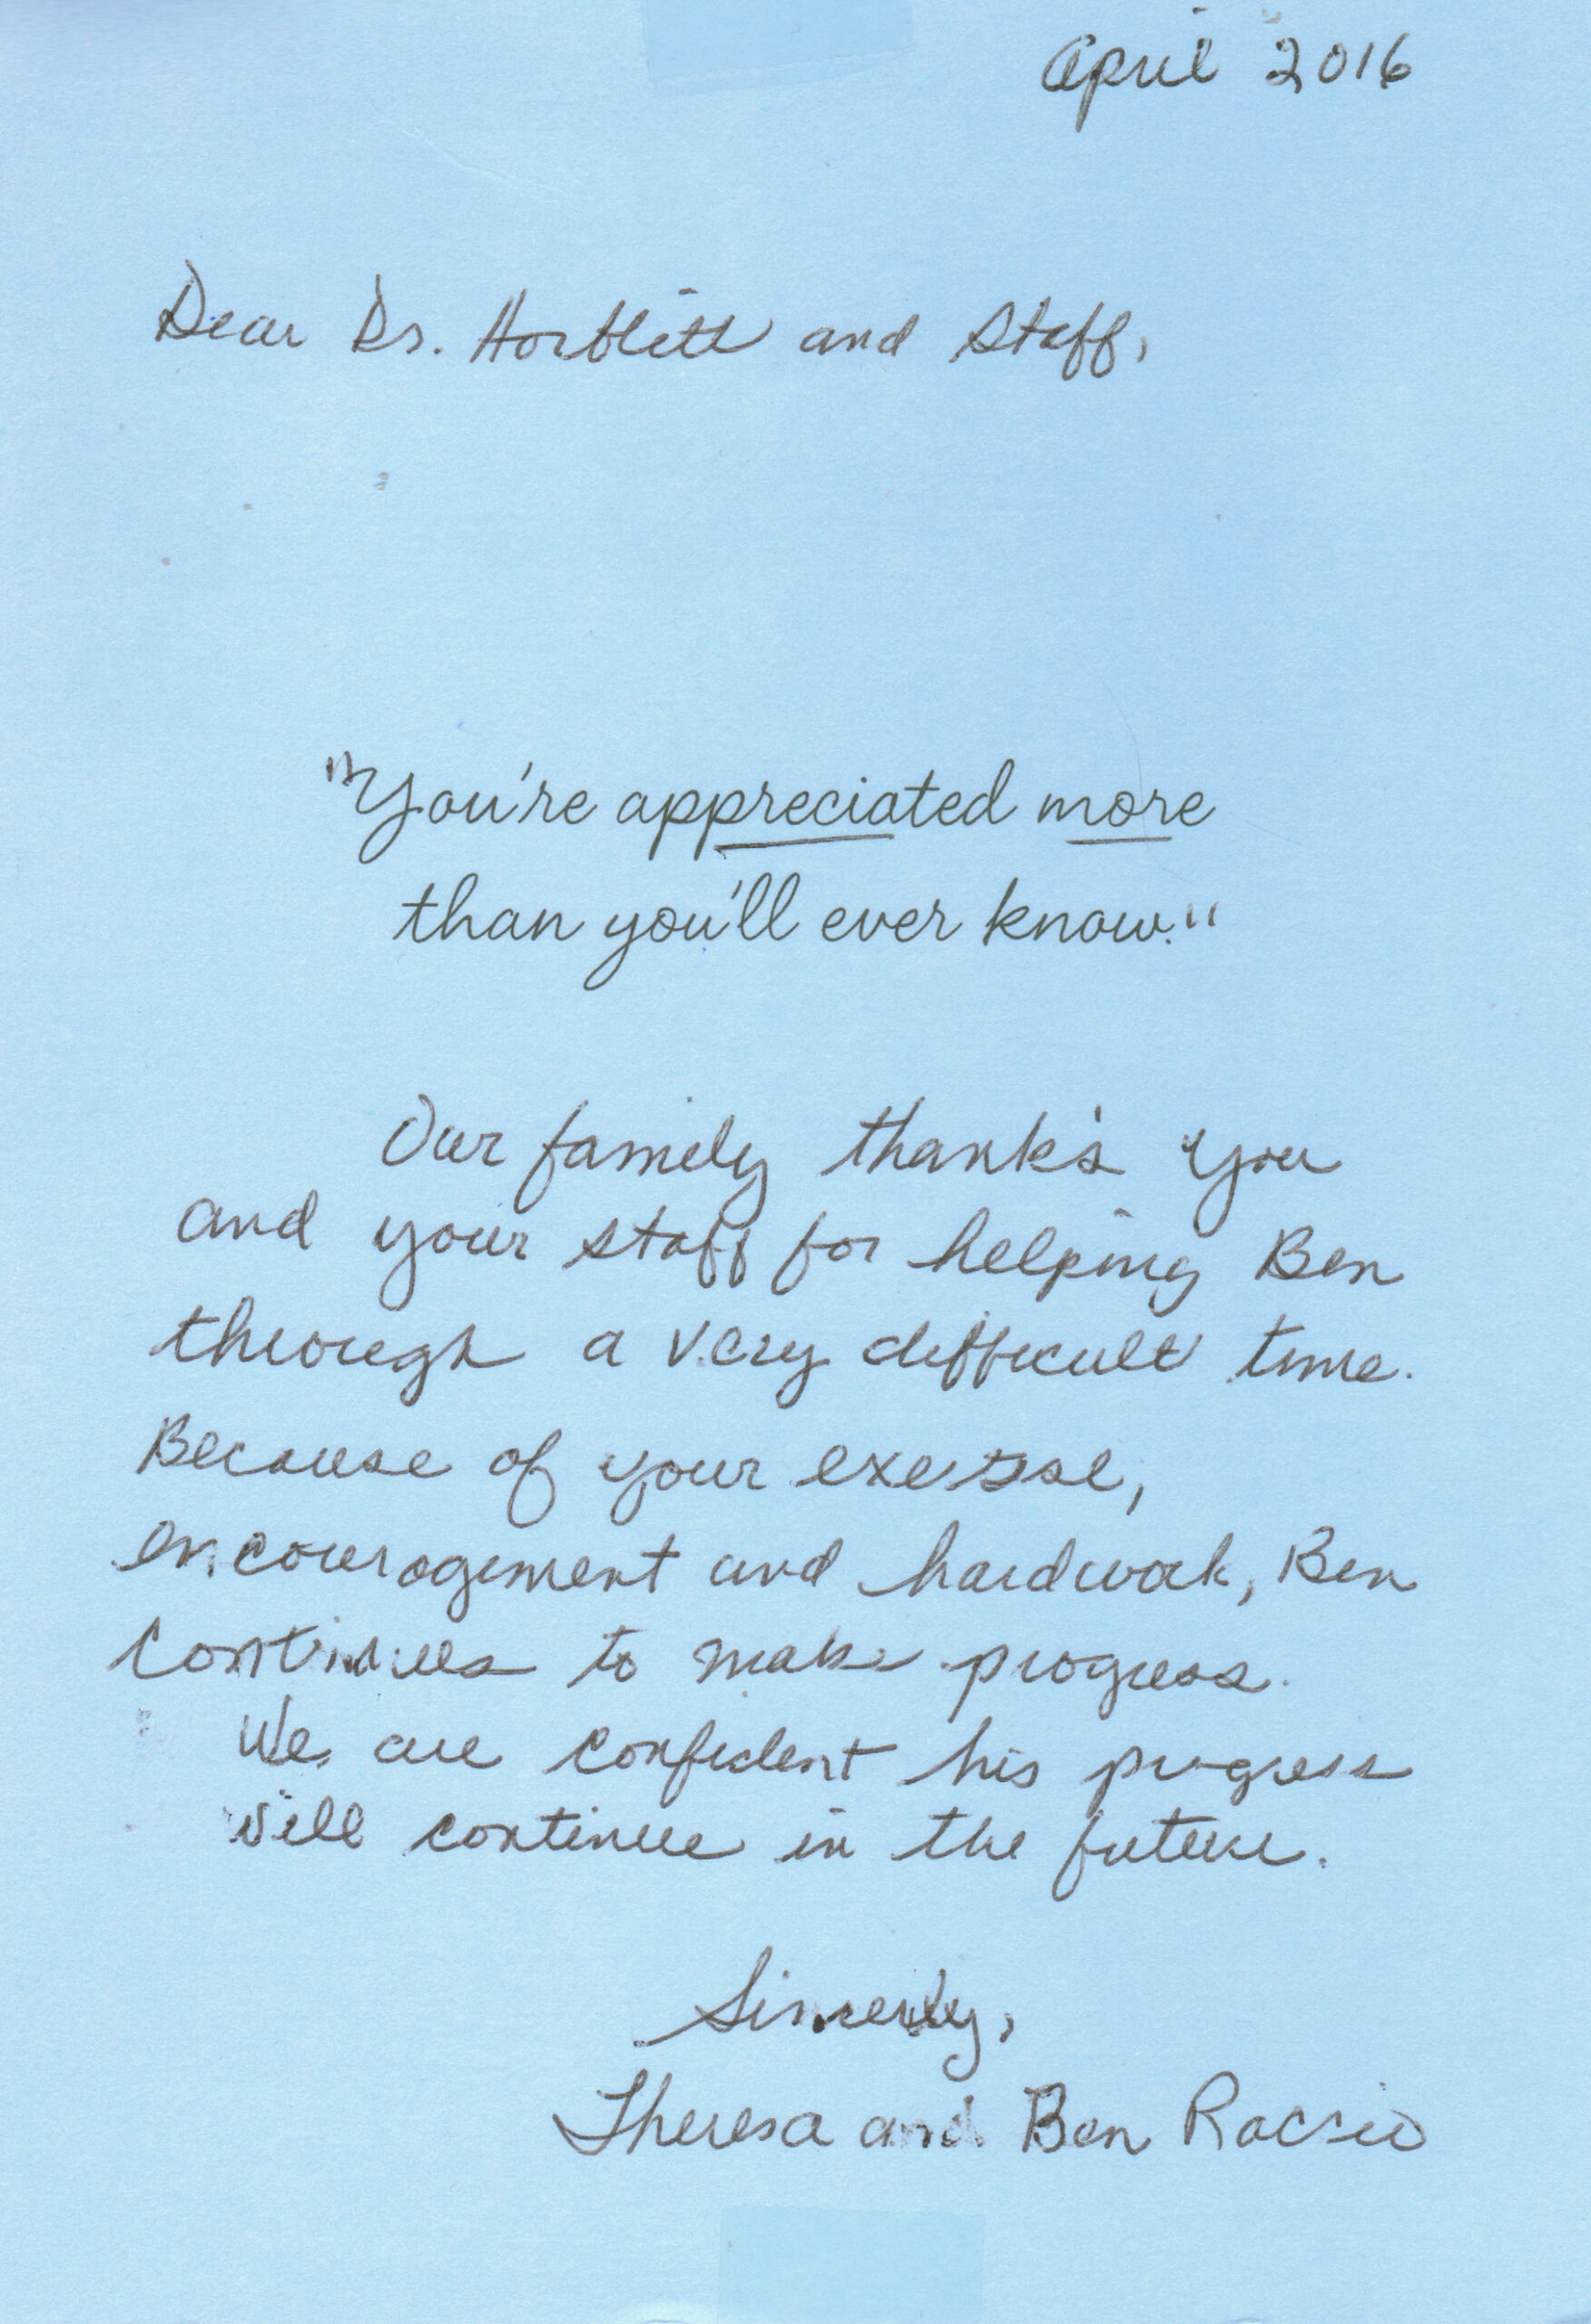 April 2016
Dear Dr. and Staff,
"You're appreciated more
than you'll ever know."
Our family thank's you
and your staff for helping Ben
through a very difficult time.
Because of your
encouragement and hardwork, Ben
continues to make progress.
We are confident his progress
will continue in the future.
Sincerely,
Theresa and Ben